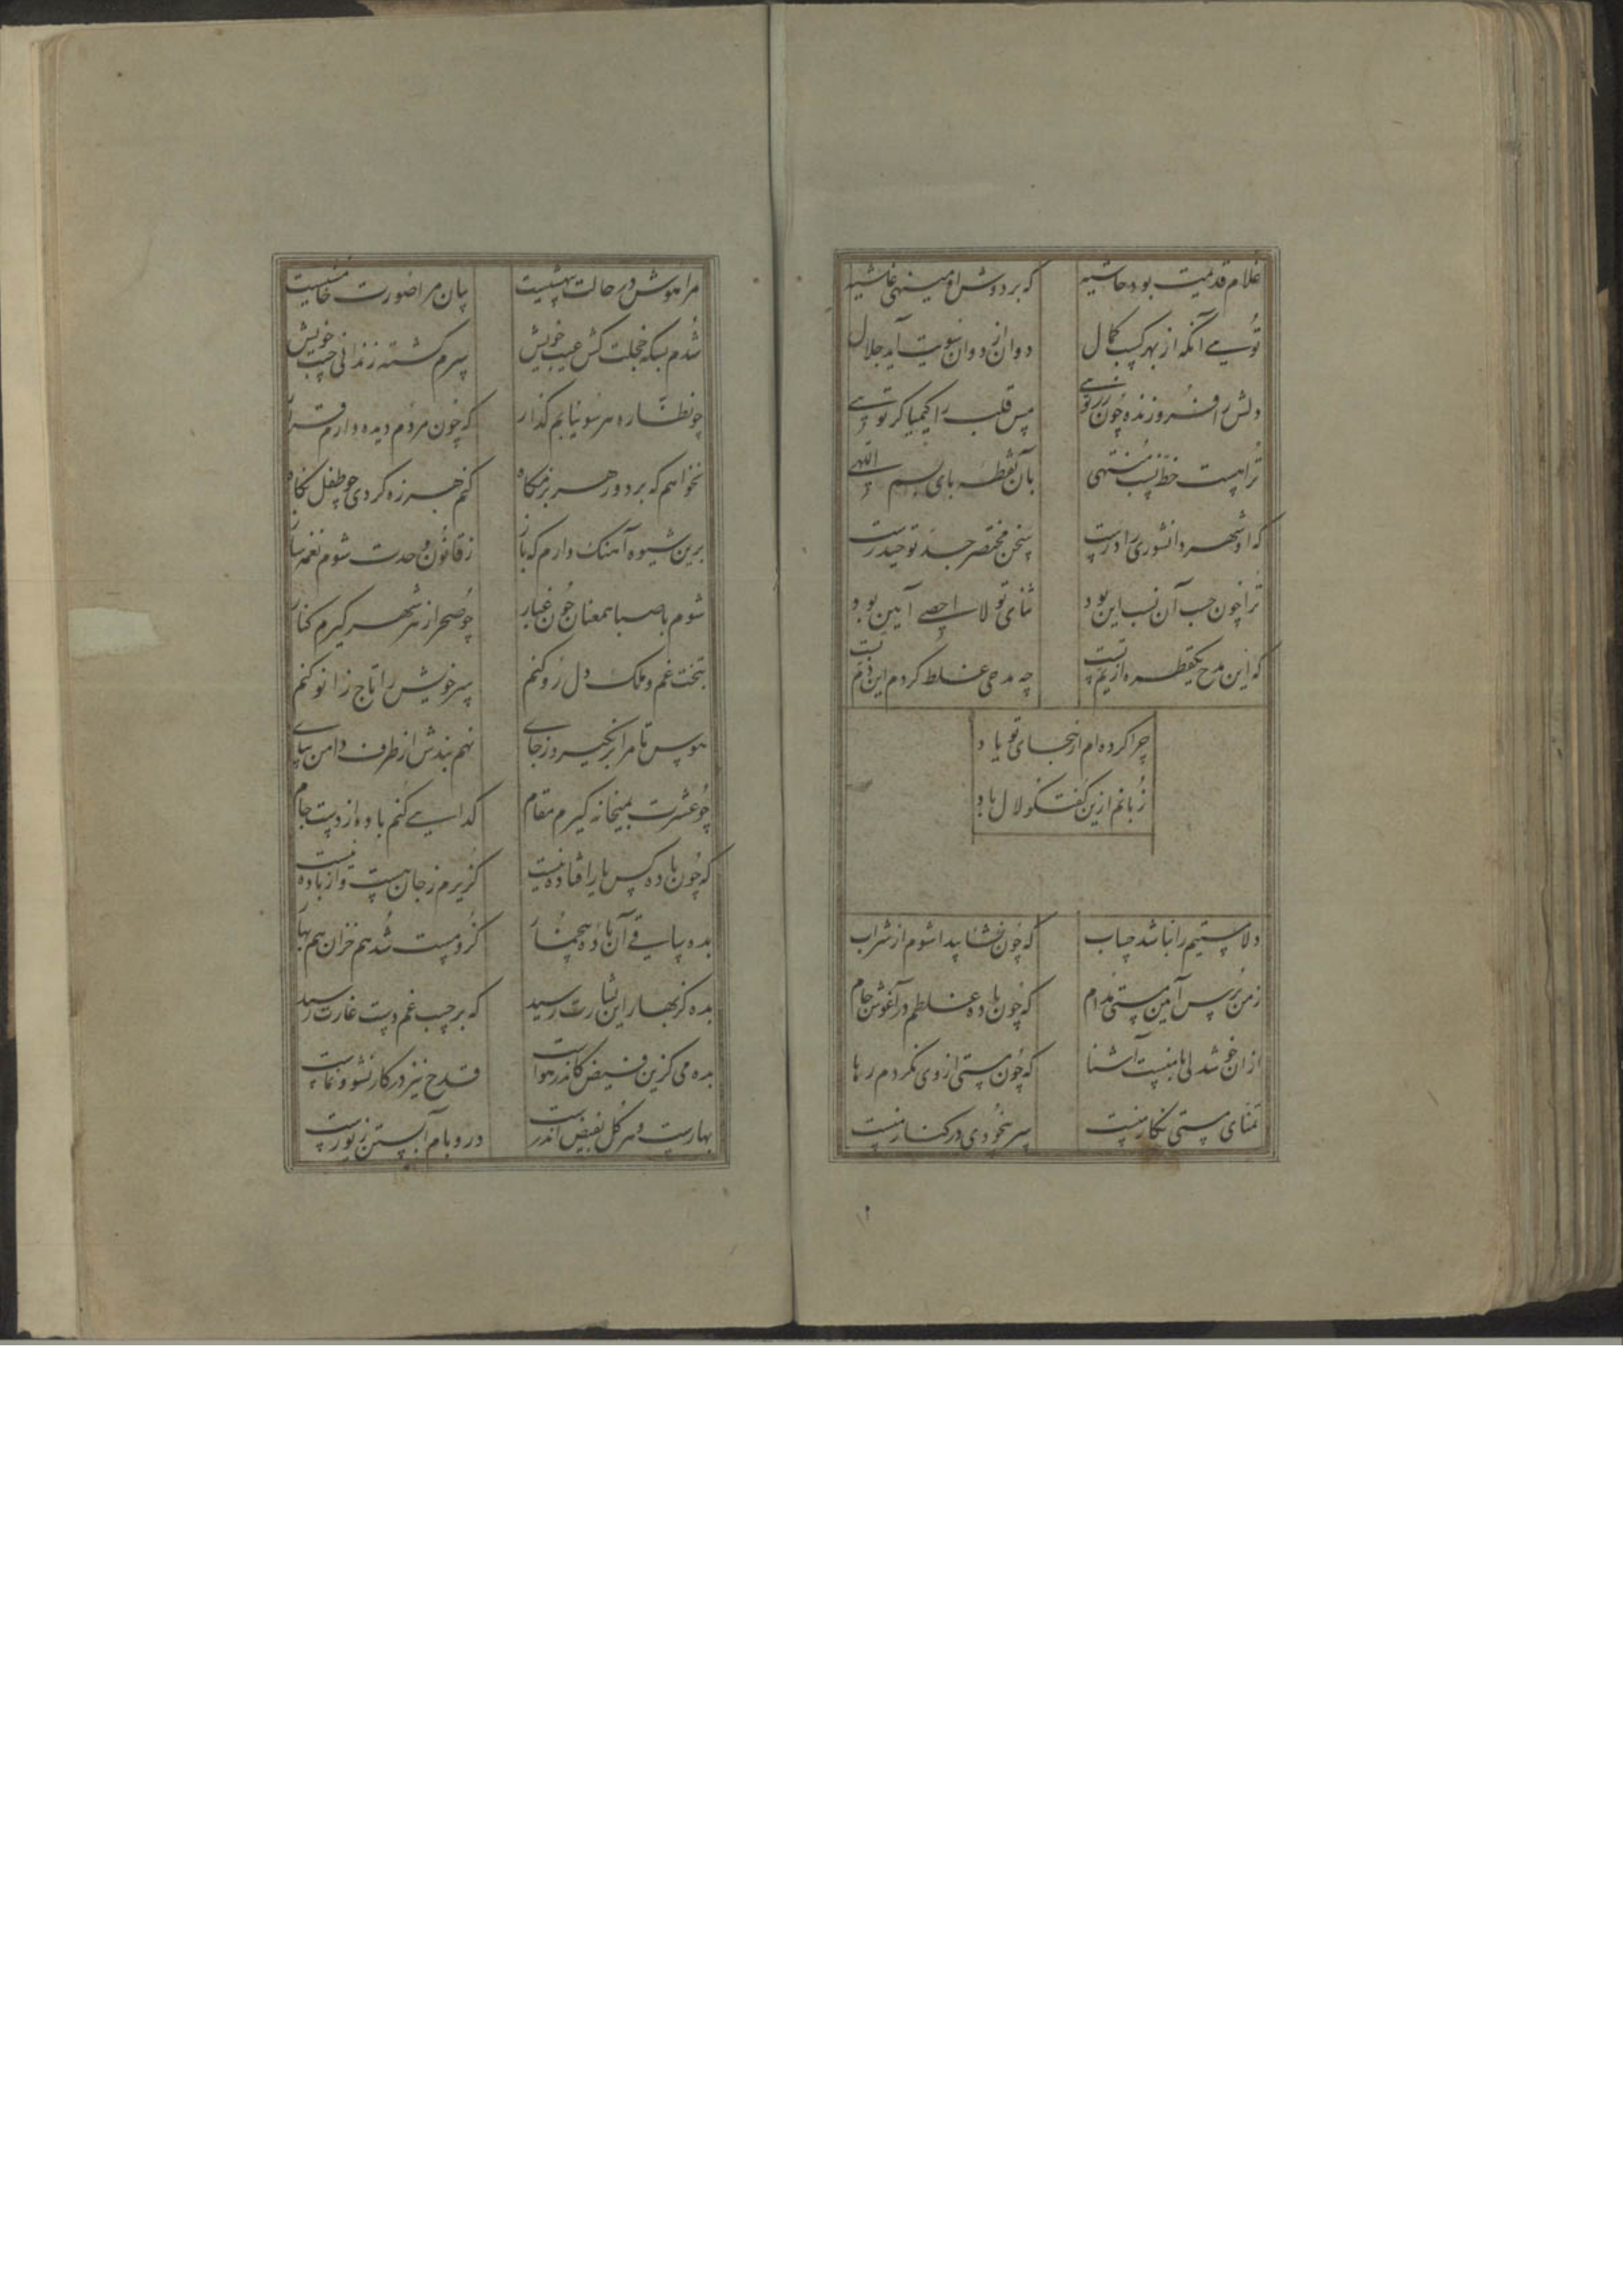 غلام قدیمیت بود حاشیه
که بر دوش او مینهی غاشیه
تویی آنکه از بهر کسب کمال
دوان از دوان سویت آید جلال
دلش را فروزنده چون زر تویی
مس قلب را کیمیاگر تویی
تراهست خط نسب منتهی
بآن نقطه بای بسم اللهی
که او شهر دانشوری را درست
سخن مختصر جد تو حیدرست
ترا چون حسب آن نسب این بود
ثنای تو لا احصی آیین بود
که این مدح یکقطره از یم تست
چه مدحی غلط کردم این ذم تست
چرا کرده‌ام از سخای تو یاد
زبانم ازین گفتگو لال باد
دلا مستیم را نباشد حساب
که چون نشا پیدا شوم از شراب
ز من پرس آیین مستی مدام
که چون باده غلطم در آغوش جام
از آن خوشدلی با منست آشنا
که چون مستی از وی نکردم رها
تمنای مستی نگار منست
سر بیخودی در کنار منست
مرا هوش در حالت بیهشیست
بیان مرا صورت خامشیست
شدم بسکه خجلت کش عیب خویش
سرم گشته زندانی جیب خویش
چو نظاره هر سو نیابم گذار
که چون مردم دیده دارم قرار
نخواهم که بر دور هر بزمگاه
کنم هرزه گردی چو طفل نگاه
برین شیوه آهنگ دارم که باز
ز قانون وحدت شوم نغمه ساز
شوم با صبا همعنان چون غبار
چو صحرا ز هر شهر گیرم کنار
بتخت غم و ملک دل رو کنم
سر خویش را تاج زانو کنم
هوس تا مرا برنگیرد ز جای
نهم بندش از طرف دامن بپای
چو عشرت بمیخانه گیرم مقام
گدایی کنم باده از دست جام
که چون باده کس یار افتاده نیست
گزیرم ز جان هست و از باده نیست
بده ساقی آن باده بیخمار
کزو مست شد هم خزان هم بهار
بده کز بهار این بشارت رسید
که بر جیب غم دست غارت رسید
بده می کزین فیض کاندر هواست
قدح نیز در کار نشو و نماست
بهارست و هر گل بفیض اندرست
در و بام آبستن زیورست